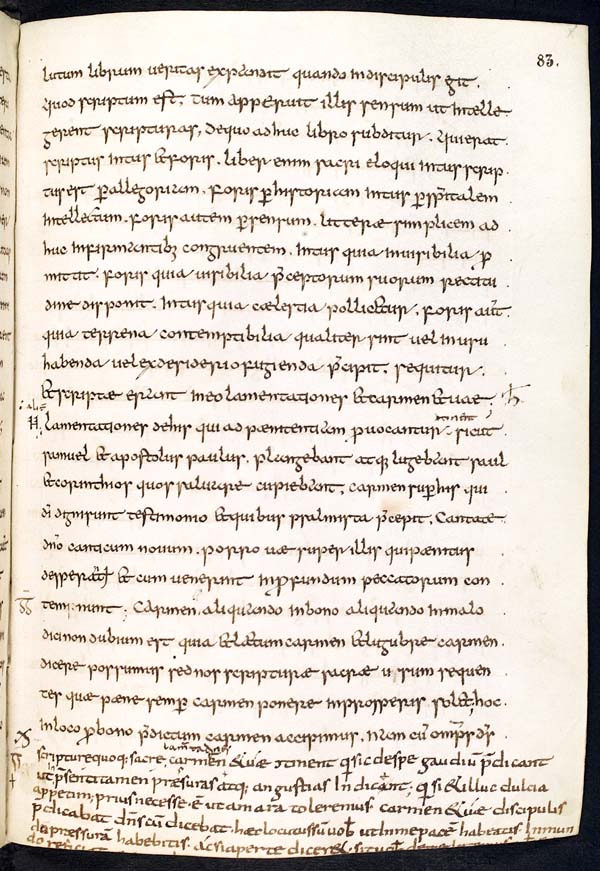 83.
lutum librum ueritas expendit quando in discipulis git.
Quod scriptum est, tum apperuit illis sensum ut intelle
gerent scripturas, de quo adhuc libro subditur. Qui erat
scriptus intus & foris. Liber enim sacri eloqui intus scrip
tus est p allegoriam. foris p historiam intus p spitalem
intellectum. foris autem p sensum. litterae simplicem ad
huc infirmantibz congruentem. Intus quia inuisibilia p
mittit. foris quia uisibilia pceptorum suorum rectitu
dine disponit. Intus quia caelestia pollicetur. foris aut
quia terrena contemptibilia qualiter sint uel in usu
habenda uel ex desiderio fugienda pcipit. sequitur.
& scriptae erant in eo lamentationes & carmen & uae. h
lamentationes de his qui ad paenitentiam puocantur. sicut
samuel & apostolus paulus. plangebant atq; lugebant saul
& corinthios quos saluare cupiebant, carmen sup his qui
di digni sunt testimonio & quibus psalmista pcepit. Cantate
dno canticum nouum. porro uae super illis qui paenitus
& cum uenerint in pfundum peccatorum con
temnunt; Carmen, aliquando in bono aliquando in malo
dici non dubium est quia & laetum carmen & lugubre carmen.
dicere possumus sed nos scripturae sacrae usum sequen
tes quae paene semp carmen ponere in prosperis solet, hoc
in loco p bono pdictum carmen accipimus. Nam cu
scripture quoq; sacre, carmen & uae stinent q sic de spe gaudiu pdicant
ut psentia tamen psuras atq; angustias indicant; q si & illuc dulcia
appetim; prius necesse e ut amara toleremus. carmen & uae discipulis
pdicabat dns cu dicebat. haec locutus su uob ut in me pace habeatis. In mun
do pressura habebitis. Ac si aperte diceret.